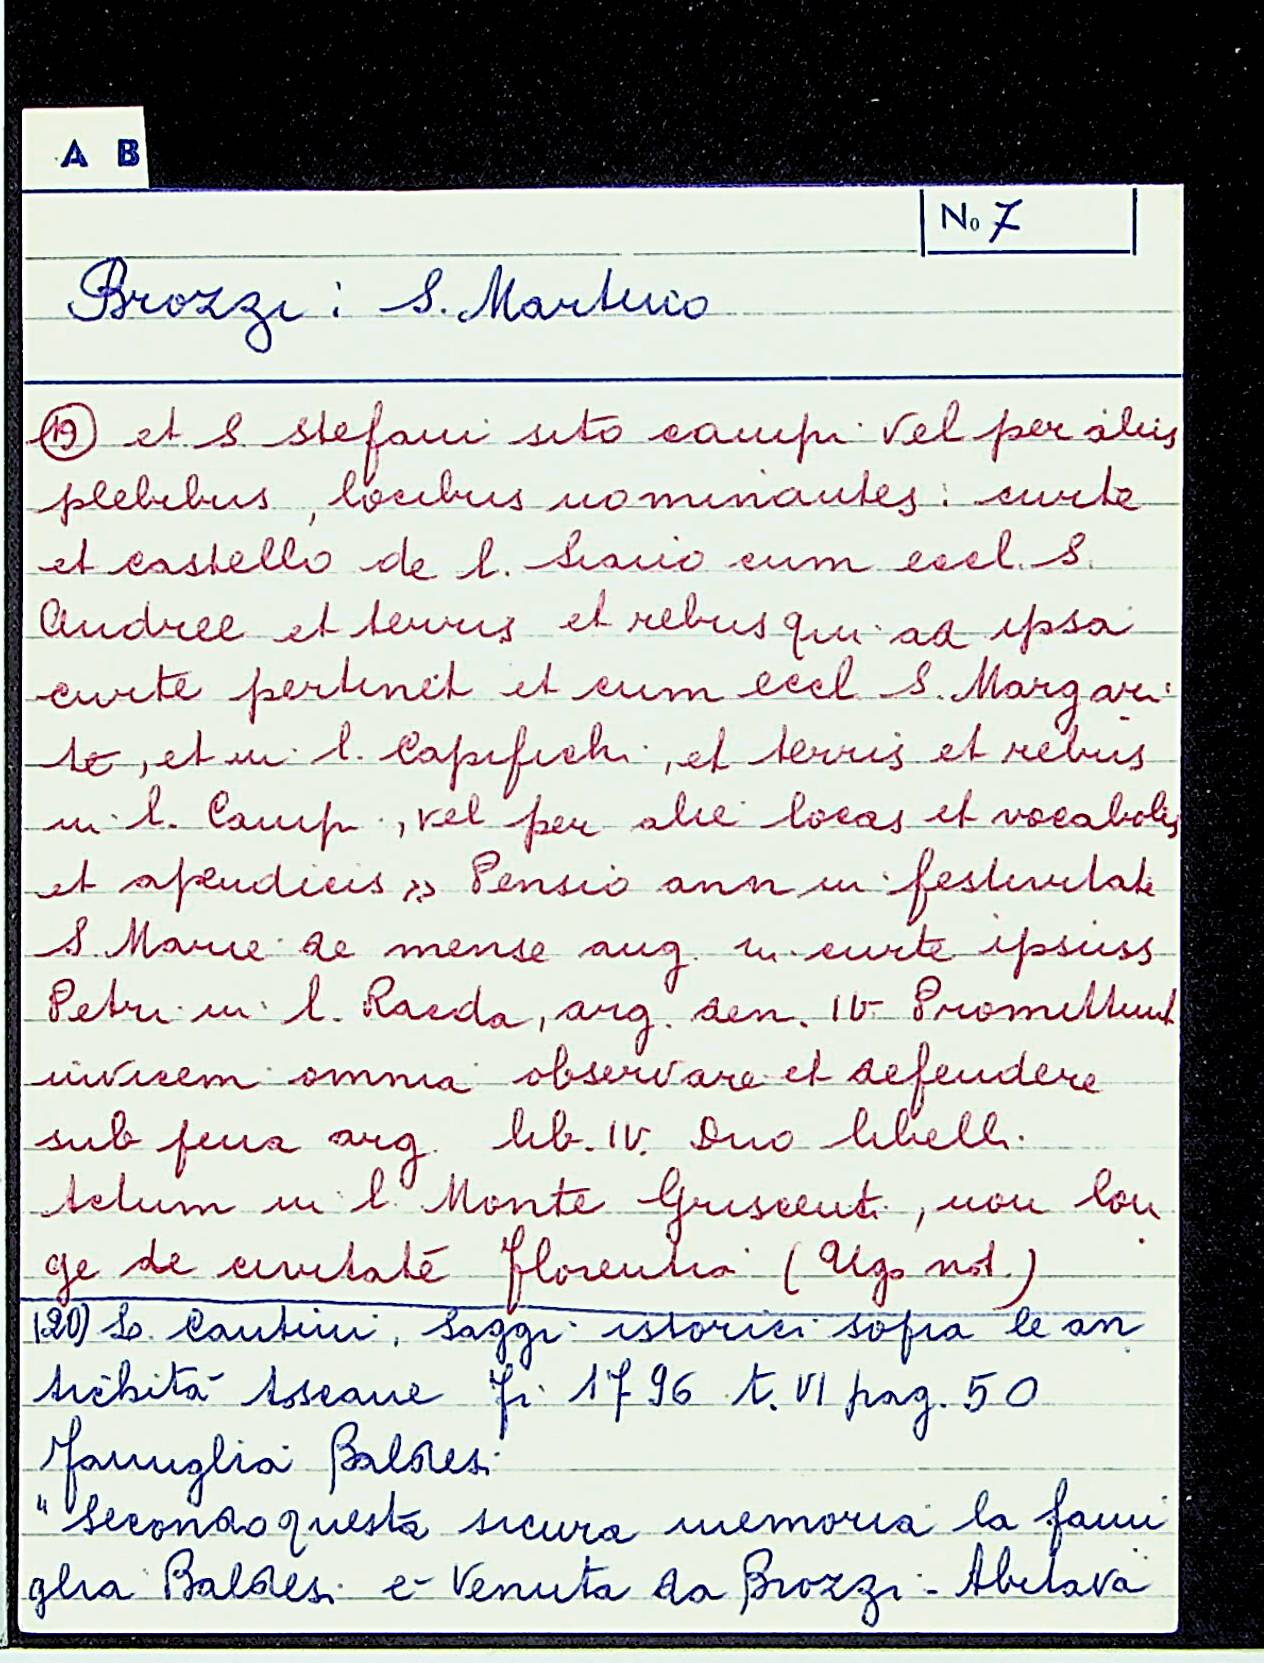 A B
No 7
Brozzi: S. Martino
19) et S Stefani sito campi vel per aliis
plebibus, locibus nominantes: curte
et castello de l. cum eccl. S.
Andree et terris et rebus qui ad ipsa
curte pertinet et cum eccl S. Margari
te, et in l. Capifichi, et terris et rebus
in l. Campi, vel per alie locas et vocabolis
et apendicis» Pensio ann in festivitate
S. Marie de mense aug. in curte ipsius
Petri in l. Raeda, arg. den. IV. Promittunt
invicem omnia observare et defendere
sub pena arg. lib. IV. Duo libelli.
Actum in l. Monte, non lon
ge de civitate Florentia (Ugo not.)
(20) Lo. Cantini, Saggi istorici sopra le an
tichità toscane Fi 1796 t. VI pag. 50
Famiglia Baldesi
"Secondo questa sicura memoria la fami
glia Baldesi è venuta da Brozzi - Abitava